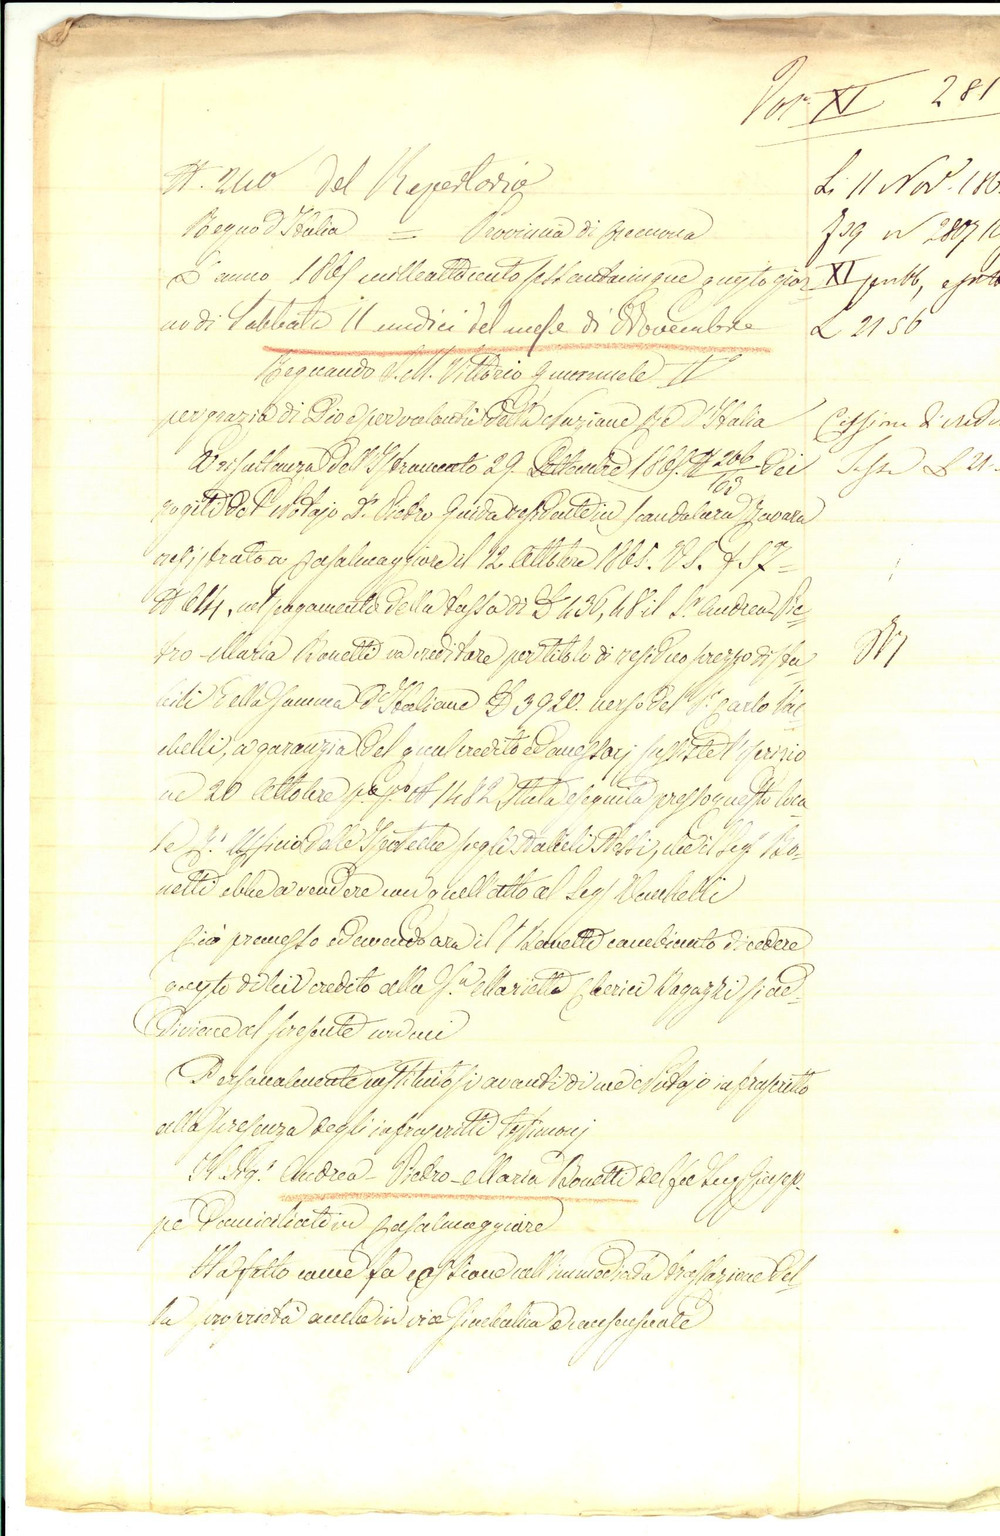 Vol. XI 281
N. 240 del Repertorio
Regno d'Italia = Provincia di Cremona
L'anno 1865 milleottocento sessantacinque questo gior-
no di Sabbato 11 undici del mese di Novembre
Regnando S. M. Vittorio Emanuele II
per grazia di Dio e per volontà della Nazione Re d'Italia
A risultanza dell'Istromento 29 Settembre 1865 N 206/163 dei
rogiti del Notajo Dr. Pietro Guida residente in Scandolara Ravara
registrato a Casalmaggiore il 12 Ottobre 1865. V. 5. f 57 =
N 614, nel pagamento della tassa di L 436,48 il Sr. Andrea Pie-
tro Maria Bonetti va creditore per titolo di residuo prezzo di sta-
bili della somma d'Italiane L 3920. verso del Sr. Carlo
a garanzia del qual credito ed accessorj sussiste l'iscrizio
ne 20 Ottobre N 1482 stata eseguita presso questo loca-
le Ufficio delle Ipoteche sugli stabili stessi, che il Sigr. Bo-
netti ebbe a vendere con quell'atto al Sigr
Ciò premesso ed avendo ora il Sr Bonetti combinato di cedere
questo di lui credito alla Sra. Marietta Clerici Ragazzi si ad-
diviene al presente con cui
Personalmente costituitosi avanti di me Notajo infrascritto
alla presenza degli infrascritti testimonj
Il Sigr. Andrea - Pietro - Maria Bonetti del fu Sigr Giusep-
pe domiciliato in Casalmaggiore
Ha fatto come fa cessione coll'immediata traslazione del-
la proprietà anche in via e consensuale
Li 11 Nov. 186
n 2807
XI
L 21 56
Cessione di credi
Tassa L 21.